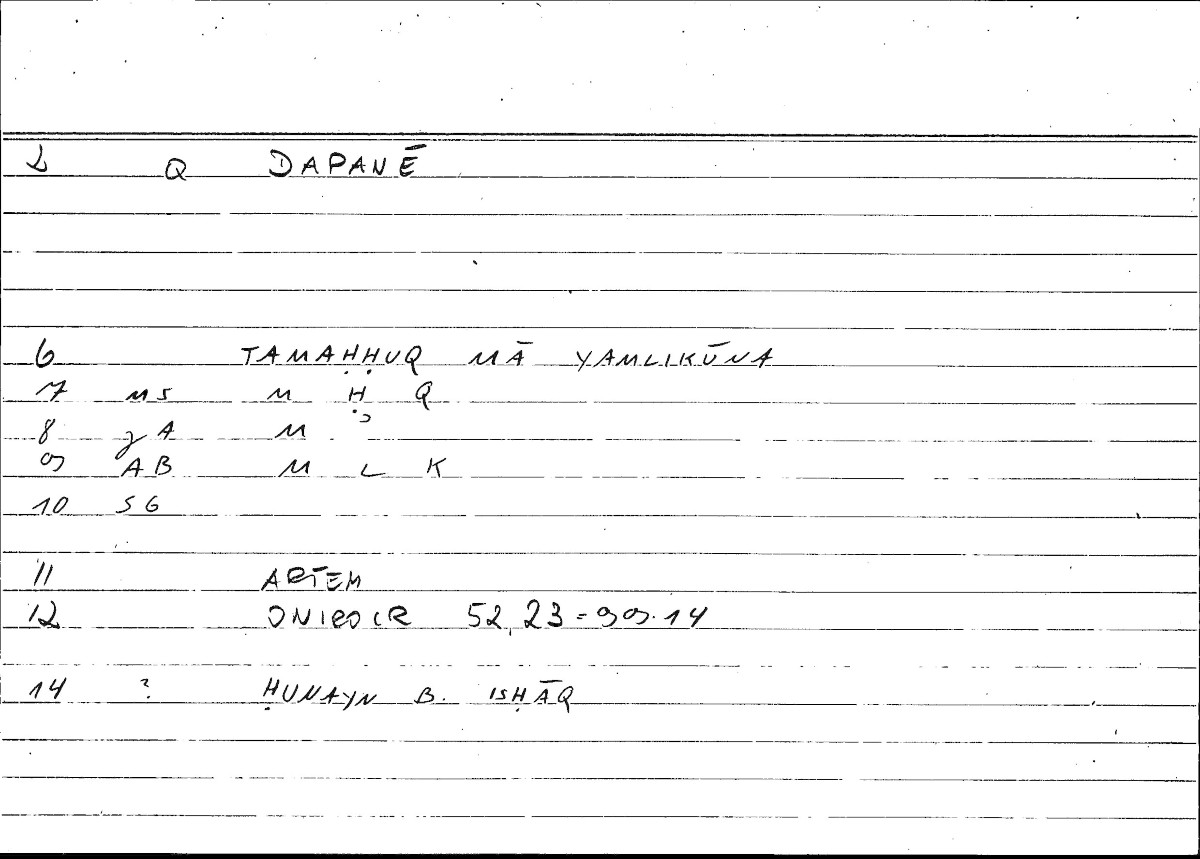 2 Q DAPANĒ
6 TAMAḤḤUQ MĀ YAMLIKŪNA
7 MS M Ḥ Q
8 gA M ʾ
9 AB M L K
10 SG
11 ARTEM
12 ONIROCR 52,23 = 99.14
14 ? ḤUNAYN B. ISḤĀQ